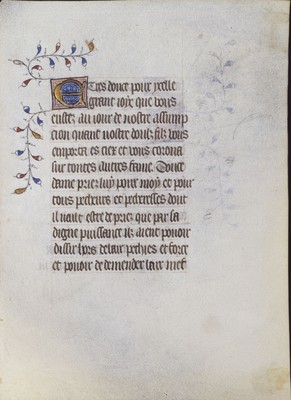 Tres douce pour ycelle
grant ioye que vous
eustez au iour de nostre assump
cion quant nostre doulz filz vous
emporta es ciex et vous corona
sur toutes autres fame. Douce
dame priez luy pour moy et pour
tous pecheurs et pecheresses dont
il uault estre de priez que par sa
digne puissance ilz aient pouoir
dissir hors de lair pechies et force
et pouoir de demender laur mef